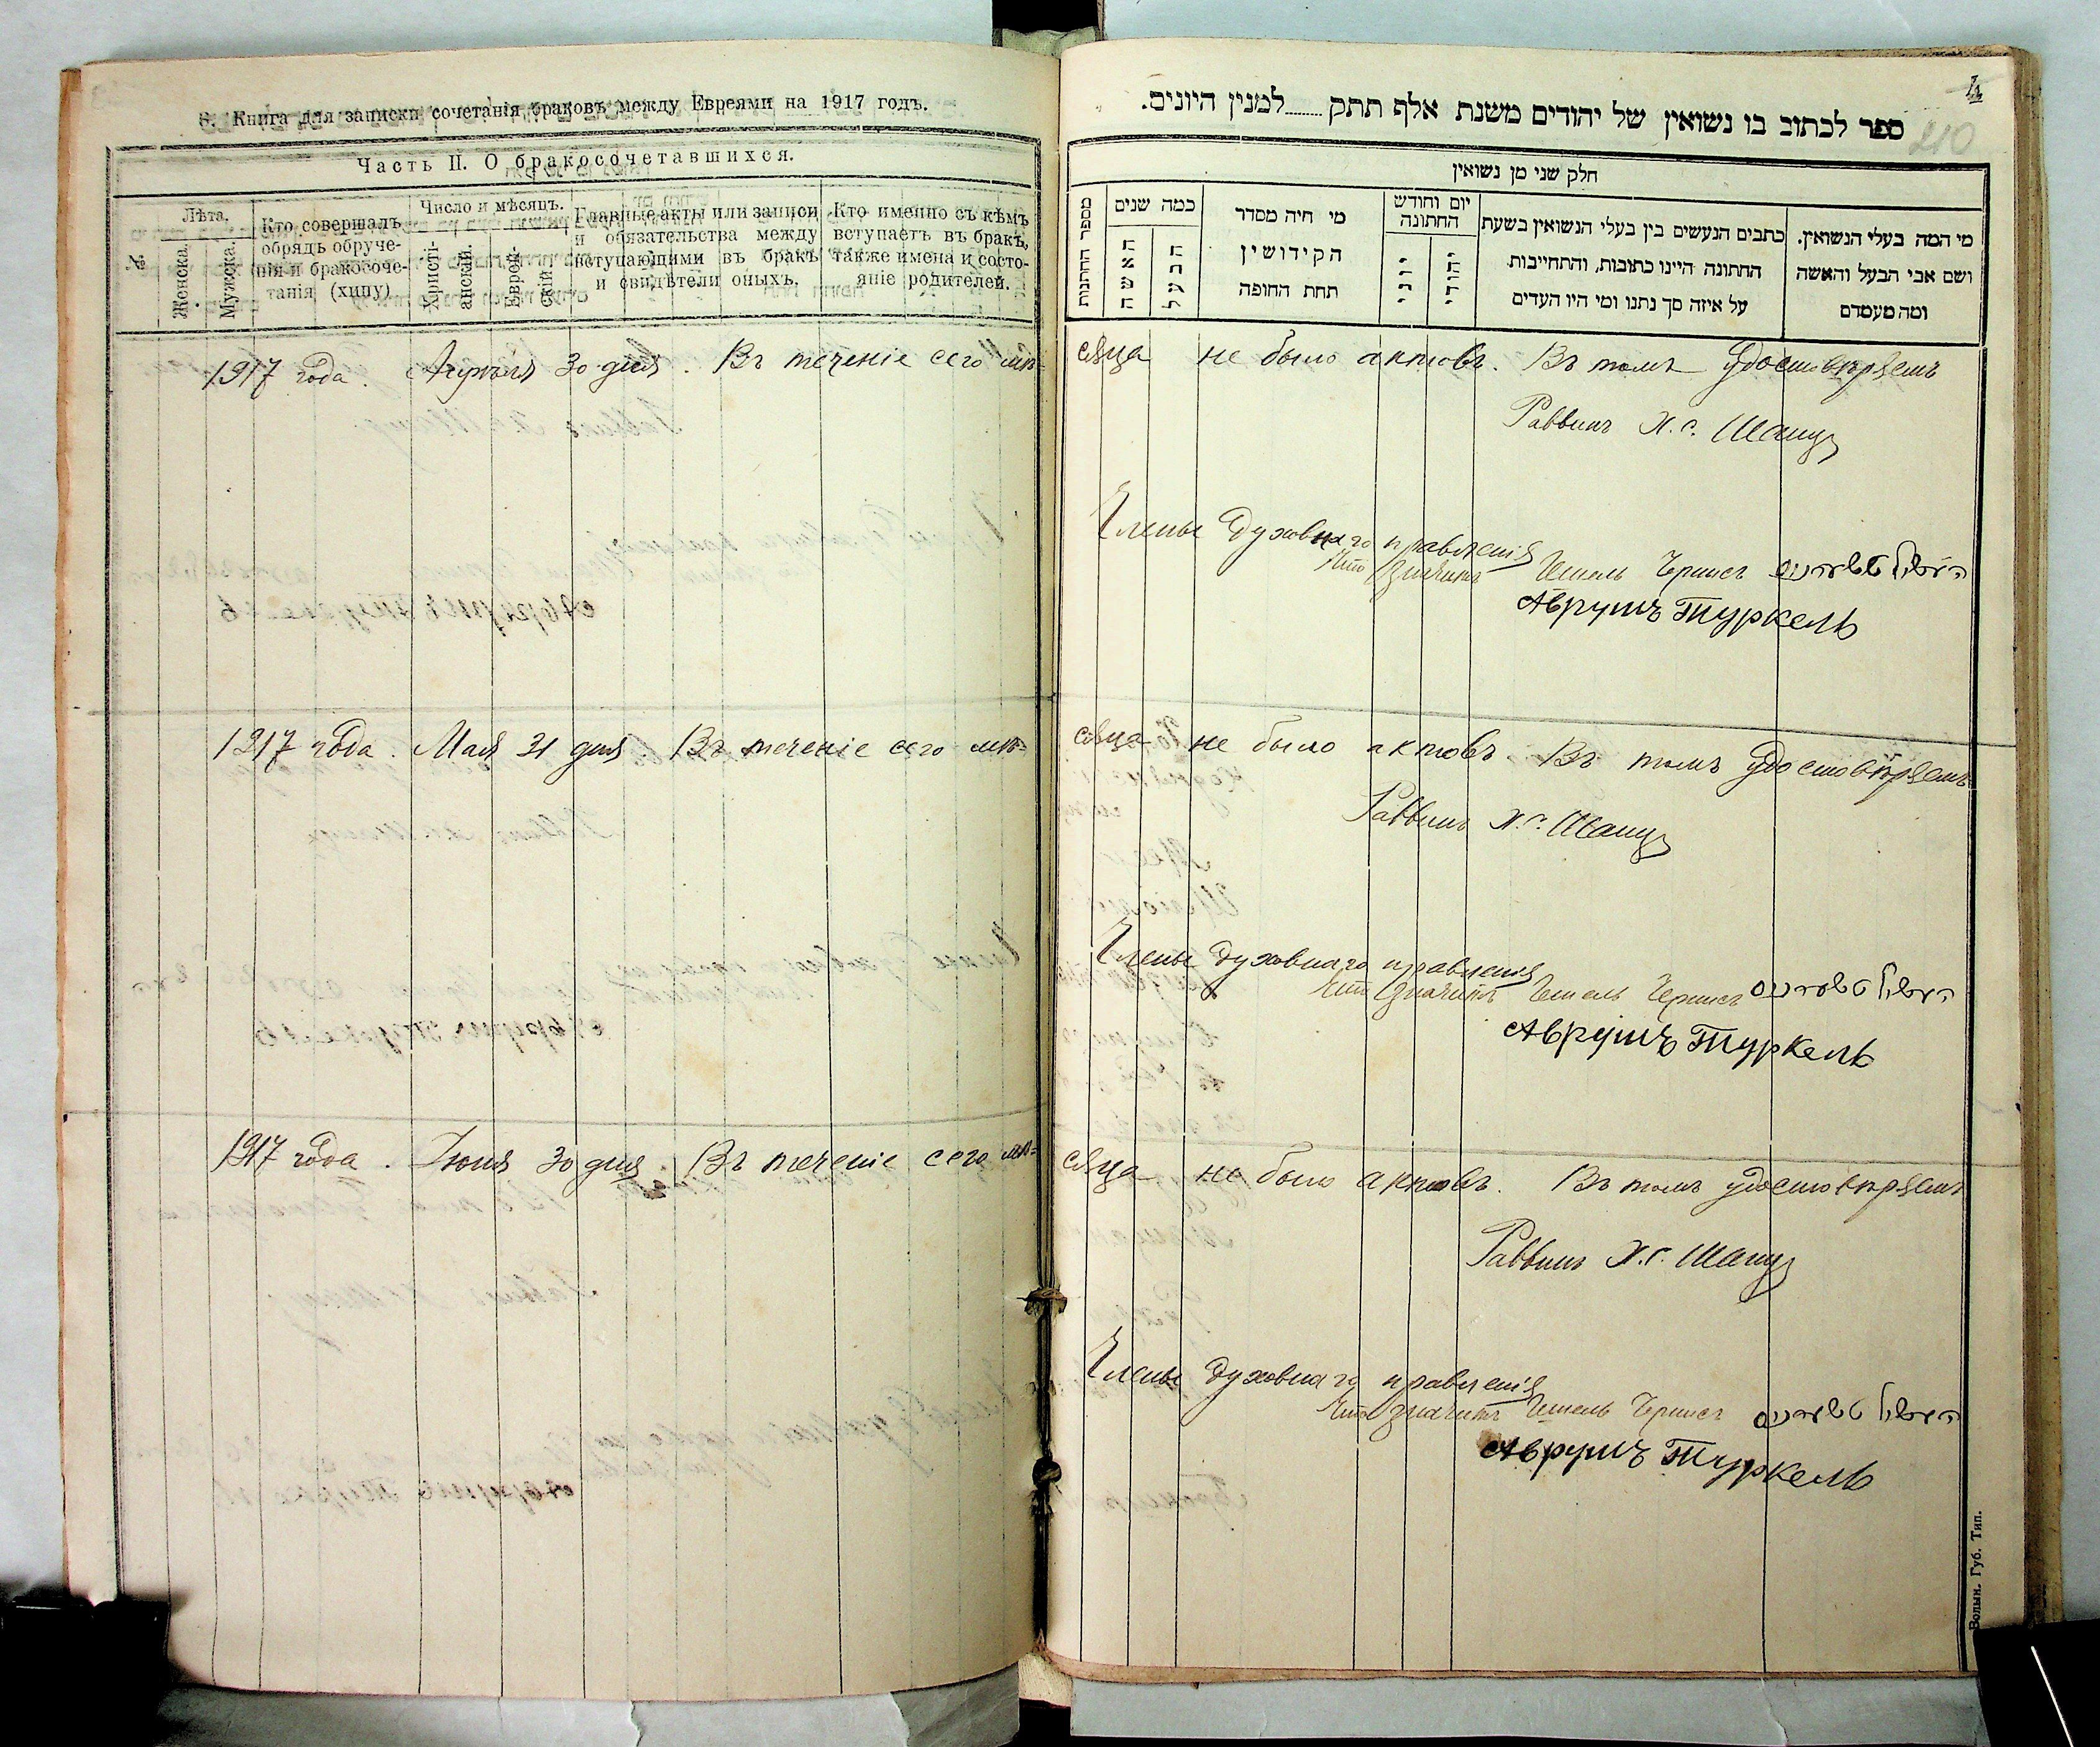 6. Книга для записки сочетанія браковъ между Евреями на 1917 годъ.
Часть II. О бракосочетавшихся.
№
Лѣта.
Женска.
Мужска.
Кто совершалъ
обрядъ обруче-
нія и бракосоче-
танія (хипу)
Число и мѣсяцъ.
Христі-
анскій.
Еврей-
скій.
Главные акты или записи
и обязательства между
вступающими въ бракъ
и свидѣтели оныхъ.
Кто именно съ кѣмъ
вступаетъ въ бракъ,
также имена и состо-
яніе родителей.
1917 года. Апрѣля 30 дня. Въ теченіе сего мѣ-
1917 года. Мая 31 дня. Въ теченіе сего мѣ-
1917 года. Іюня 30 дня. Въ теченіе сего мѣ-
210
ספר לכתוב בו נשואין של יהודים משנת אלף תתק......למנין היונים.
חלק שני מן נשואין
מספר החתונות
כמה שנים
האשה
הבעל
מי היה מסדר
הקידושין
תחת החופה
יום וחודש
החתונה
יוני
יהודי
כתבים הנעשים בין בעלי הנשואין בשעת
החתונה היינו כתובות, והתחייבות
על איזה סך נתנו ומי היו העדים
מי המה בעלי הנשואין.
ושם אבי הבעל והאשה
ומה מעמדם
сяца не было актовъ. Въ томъ удостовѣряемъ
Раввинъ Х. С. Шапиръ
Члены Духовнаго правленія
Что значитъ Гешель Чернисъ העשיל טשערניס
Аврумъ Туркель
сяца не было актовъ. Въ томъ удостовѣряемъ
Раввинъ Х. С. Шапиръ
Члены Духовнаго правленія
Что значитъ Гешель Чернисъ העשיל טשערניס
Аврумъ Туркель
сяца не было актовъ. Въ томъ удостовѣряемъ
Раввинъ Х. С. Шапиръ
Члены Духовнаго правленія
Что значитъ Гешель Чернисъ העשיל טשערניס
Аврумъ Туркель
Волын. Губ. Тип.